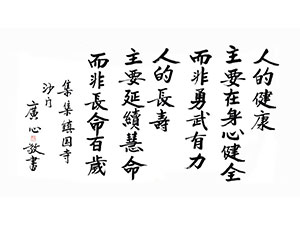 人的健康
主要在身心健全
而非勇武有力
人的長壽
主要延續慧命
而非長命百歲
集集鎮國寺
沙門
廣心敬書